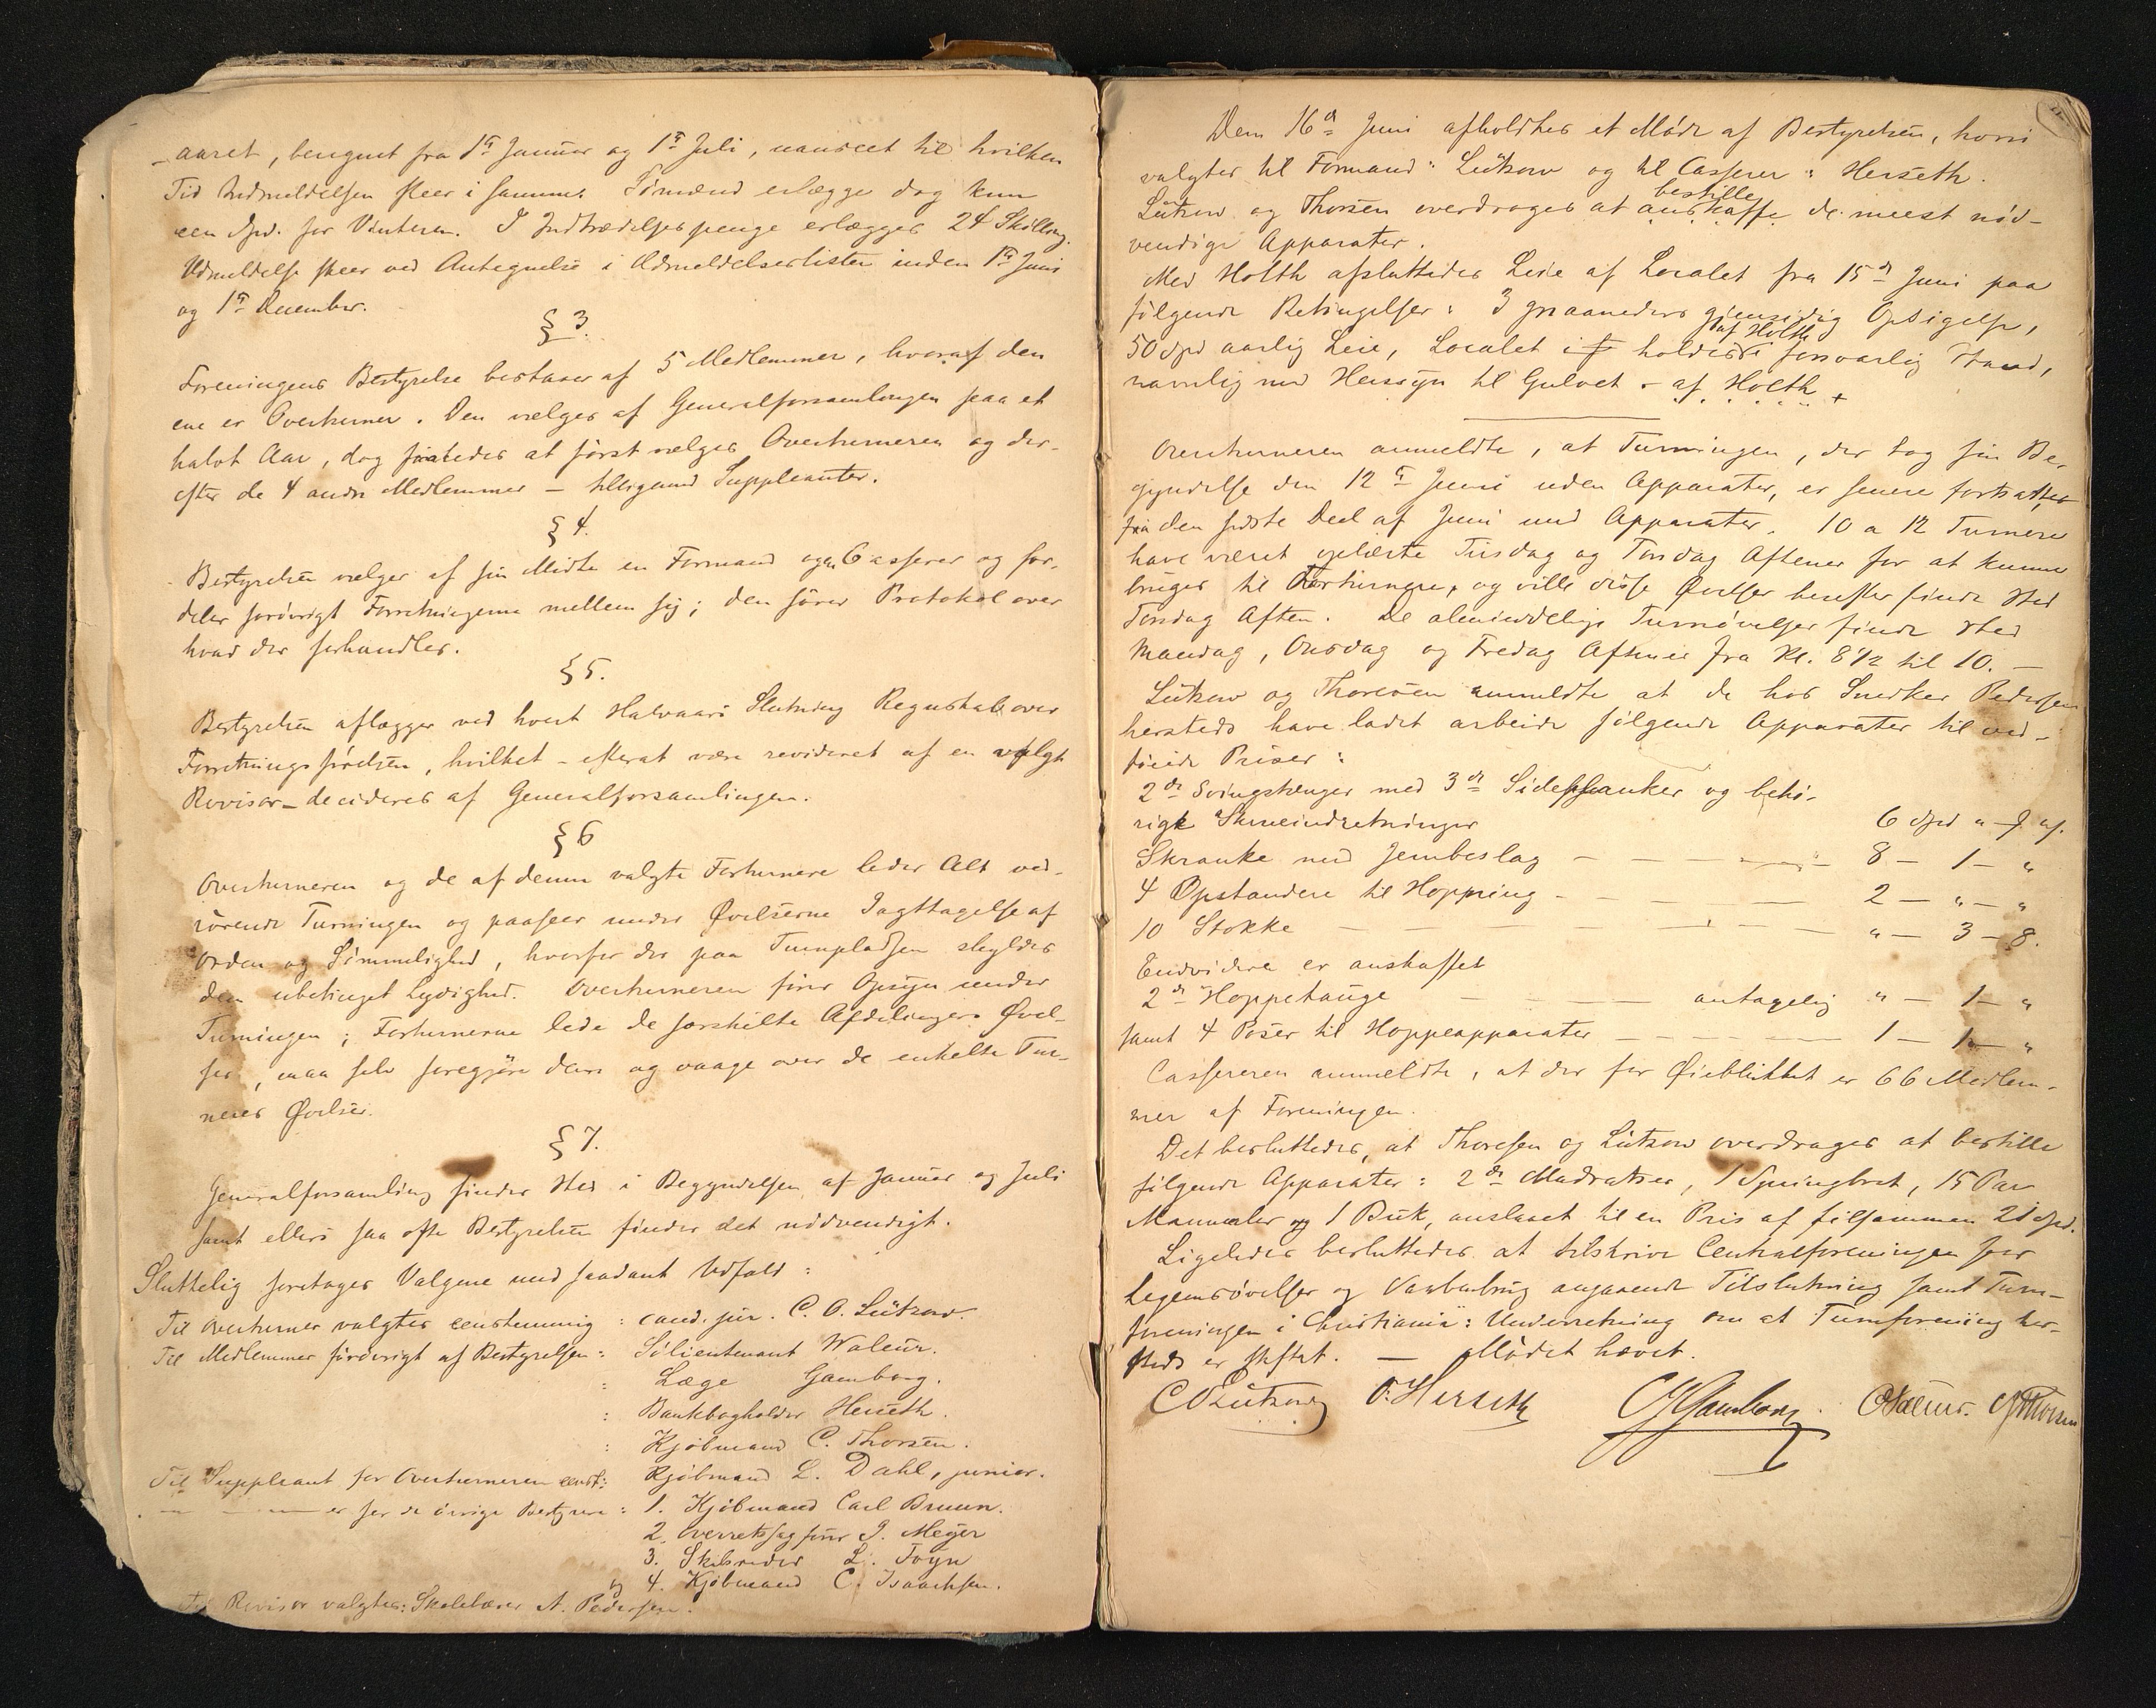 aaret, beregnet fra 1ste Januar og 1ste Juli, uanseet til hvilken
Tid Indmeldelsen skeer i samme. Sömænd erlægge dog kun
een Spd. for Vinteren. I Indtrædelsespenge erlægges 24 Skilling.
Udmeldelse skeer ved Antegnelse i Udmeldelseslisten inden 1ste Juni
og 1ste December.
§ 3.
Foreningens Bestyrelse bestaaer af 5 Medlemmer, hvoraf den
ene er Overturner. Den vælges af Generalforsamlingen paa et
halvt Aar, dog saaledes at först vælges Overturneren og der-
efter de 4 andre Medlemmer – tilligemed Suppleanter.
§ 4.
Bestyrelsen vælger af sin Midte en Formand og en Casserer og for-
deler forövrigt Forretningerne mellem sig; den förer Protokol over
hvad der forhandles.
§ 5.
Bestyrelsen aflægger ved hvert Halvaars Slutning Regnskab over
Forretningsförelsen, hvilket – efterat være revideret af en valgt
Revisor – decideres af Generalforsamlingen.
§ 6
Overturneren og de af denne valgte Forturnere leder Alt ved-
rörende Turningen og paaseer under Øvelserne Iagttagelse af
Orden og Sömmelighed, hvorfor der paa Turnpladsen skyldes
dem ubetinget Lydighed. Overturneren förer Opsyn under
Turningen; Forturnerne lede de forskilte Afdelingers Øvel-
ser, maa selv foregjöre dem og vaage over de enkelte Tur-
neres Øvelser.
§ 7.
Generalforsamling finder Sted i Begyndelsen af Januar og Juli
samt ellers saa ofte Bestyrelsen finder det nödvendigt.
Sluttelig foretoges Valgene med saadant Udfald:
Til Overturner valgtes eenstemmig: cand. jur. C. O. Lützow.
Til Medlemmer forövrigt af Bestyrelsen: Sölieutenant Waleur.
: Læge Gamborg.
: Bankbogholder Herseth.
: Kjöbmand C. Thorsen.
Til Suppleant for Overturneren eenst: Kjöbmand L. Dahl, junior.
— — er for de övrige Bestyrere: 1. Kjöbmand Carl Bruun.
2. Overretssagförer J. Meyer
3. Skibsreder L. Foyn
og 4. Kjöbmand C. Isaachsen.
Til Revisor valgtes: Skolelærer A. Pedersen.
Den 16de Juni afholdtes et Möde af Bestyrelsen, hvori
valgtes til Formand: Lützow og til Casserer: Herseth.
bestille
Lützow og Thorsen overdroges at anskaffe de meest nöd-
vendige Apparater.
Med Holth afsluttedes Leie af Localet fra 15de Juni paa
fölgende Betingelser: 3 Maaneders gjensidig Opsigelse,
af Holth
50 Spd aarlig Leie, Localet holdes i forsvarlig Stand,
navnlig med Hensyn til Gulvet – af Holth +
Overturneren anmeldte, at Turningen, der tog sin Be-
gyndelse den 12te Juni uden Apparater, er senere fortsattes
fra den sidste Deel af Juni med Apparater. 10 a 12 Turnere
have været oplærte Tirsdag og Torsdag Aftener for at kunne
bruges til Forturnere, og ville disse Øvelser herefter finde Sted
Torsdag Aften. De almindelige Turnövelser finde Sted
Mandag, Onsdag og Fredag Aftener fra Kl. 8 1/2 til 10. —
Lützow og Thoresen anmeldte at de hos Snedker Pedersen
hersteds have ladet arbeide fölgende Apparater til ved-
föiede Priser:
2de Svingstænger med 3de Sideskranker og behö-
rige Skrueindretninger 6 Spd " f " s.
Skranke med Jernbeslag — — — 8 — 1 — "
4 Opstandere til Hopning — — — 2 — " — "
10 Stokke — — — — " — 3 — 8.
Endvidere er anskaffet
2de Hoppetauge — — — antagelig " — 1 — "
samt 4 Poser til Hoppeapparater — — — 1 — 1 — "
Cassereren anmeldte, at der for Øieblikket er 66 Medlem-
mer af Foreningen.
Det besluttedes, at Thoresen og Lützow overdrages at bestille
fölgende Apparater: 2de Madratser, 1 Springbret, 15 Par
Manualer og 1 Buk, anslaaet til en Pris af tilsammen 21 Spd.
Ligeledes besluttedes at tilskrive Centralforeningen for
Legemsövelser og Vaabenbrug angaaende Tilslutning samt Turn-
foreningen i Christiania: Underretning om at Turnforening her-
steds er stiftet. — Mödet hævet.
C O Lützow O. Herseth Gamborg. Waleur. C Thorsen